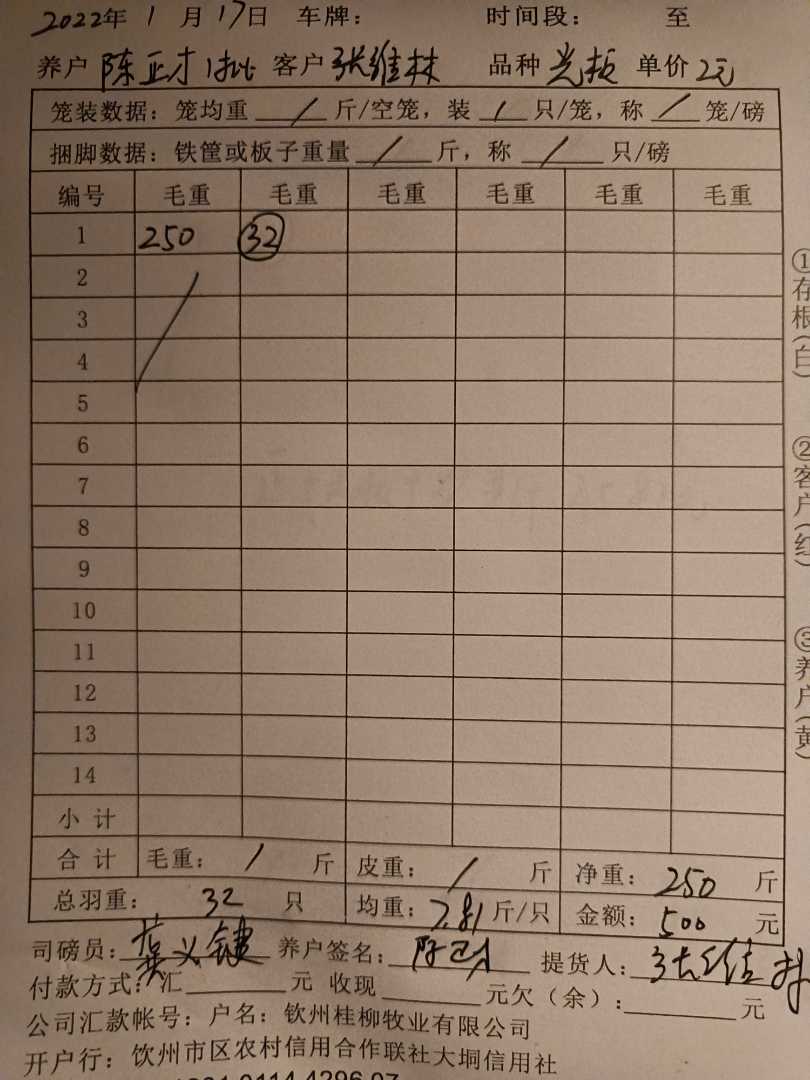 2022年 1 月 17日 车牌： 时间段： 至
养户 陈正才 1批 客户 张维林 品种 光板 单价 2元
笼装数据：笼均重 / 斤/空笼，装 / 只/笼，称 / 笼/磅
捆脚数据：铁筐或板子重量 / 斤，称 / 只/磅
编号 毛重 毛重 毛重 毛重 毛重 毛重
1 250 32
2
3
4
5
6
7
8
9
10
11
12
13
14
小计
合计 毛重： / 斤 皮重： / 斤 净重： 250 斤
总羽重： 32 只 均重： 7.81 斤/只 金额： 500 元
司磅员： 养户签名： 陈正才 提货人： 张维林
付款方式：汇 元 收现 元欠（余）： 元
公司汇款帐号：户名：钦州桂柳牧业有限公司
开户行：饮州市区农村信用合作联社大垌信用社
①存根(白)
②客户(红)
③养户(黄)